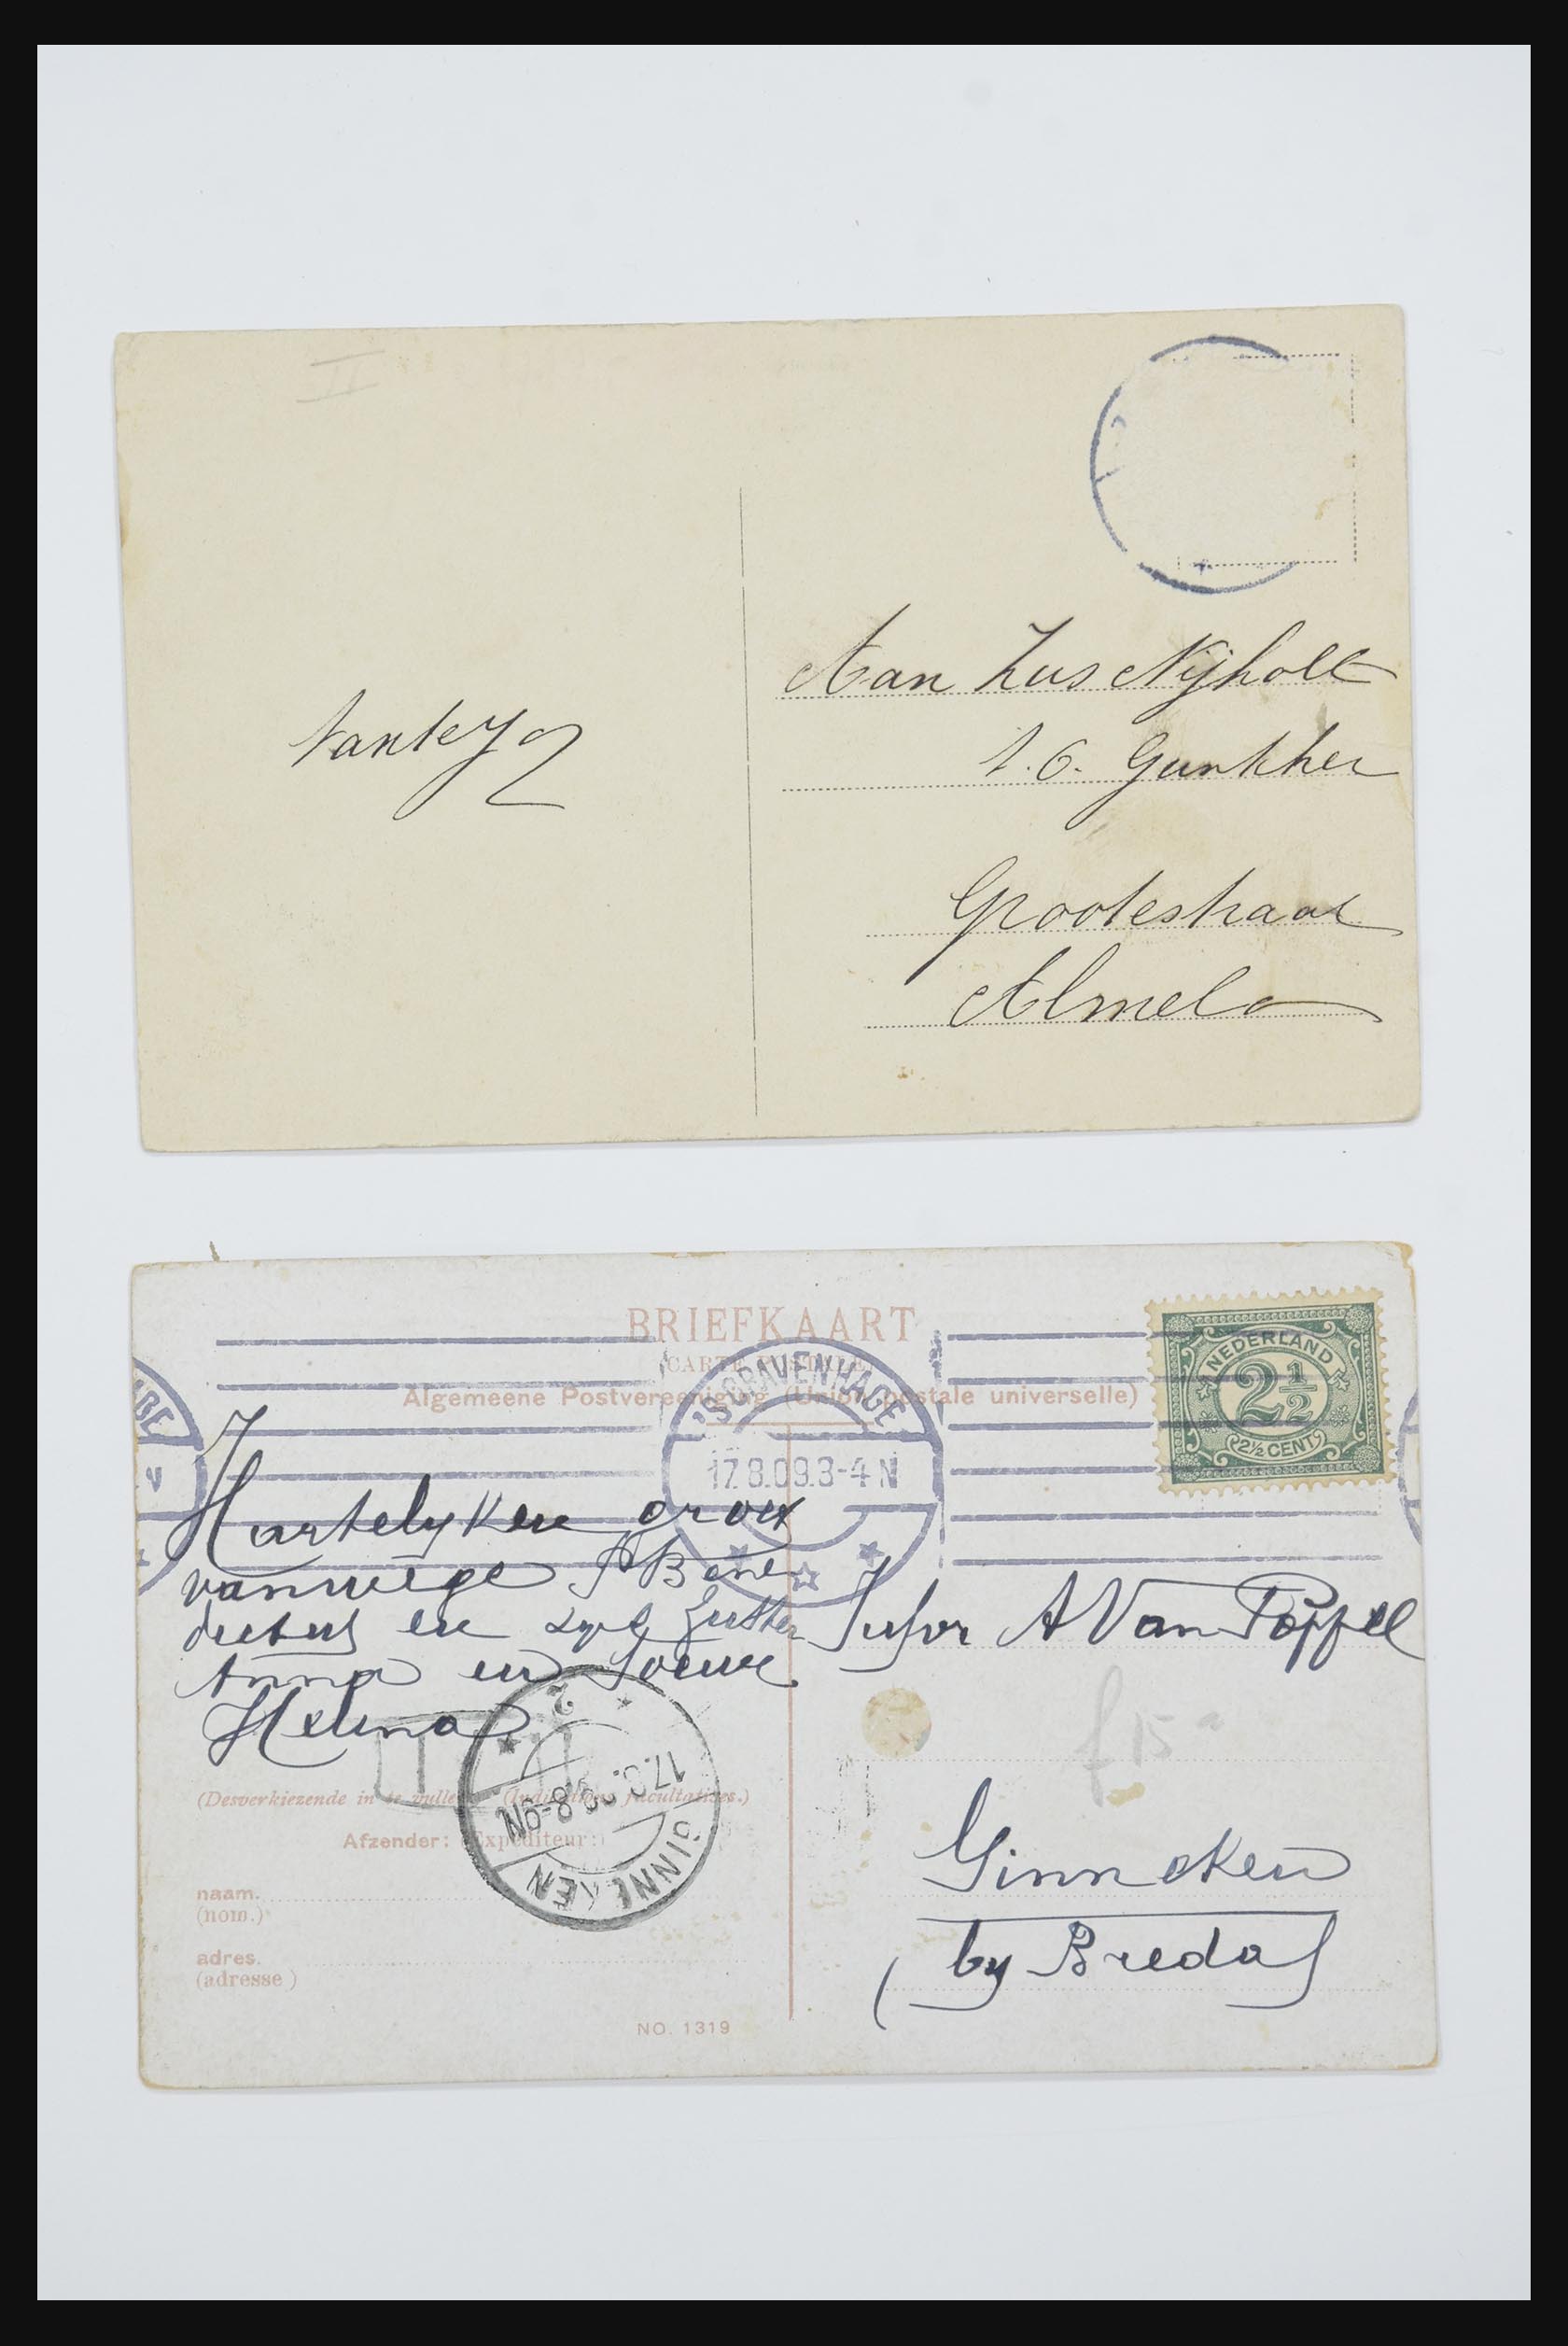 II
Aan Zus Nijholt
Tante
t.o. Gunther
Grootestraat
Almelo
BRIEFKAART
(CARTE POSTALE)
Algemeene Postvereeniging (Union postale universelle)
NEDERLAND
2½
2½ CENT
'S GRAVENHAGE
17.8.09.3-4 N
Hartelyken groet
vanwege P Bene
dictus en zyn Zuster
Anna en
Helena
Jufvr A Van Poppel
f 15
GINNEKEN
8-9N
(Desverkiezende in te vullen) (Indications facultatives.)
Afzender: (Expéditeur:)
naam.
(nom.)
adres.
(adresse)
NO. 1319
Ginneken
by Breda